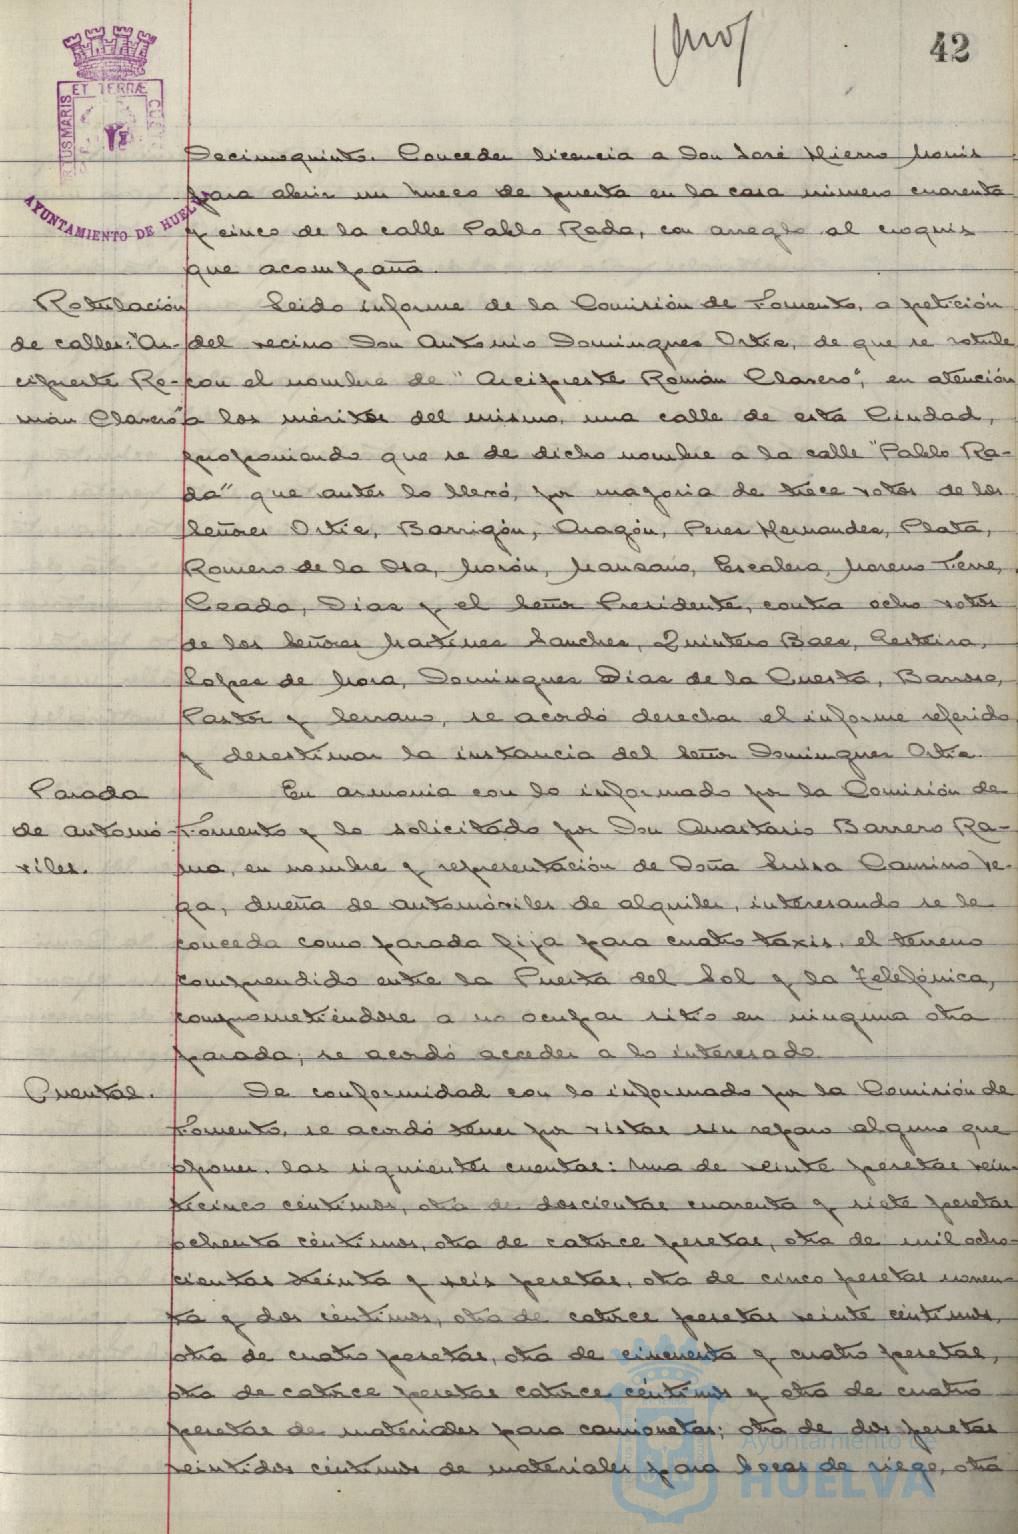 42
ET TERRÆ
US MARIS
AYUNTAMIENTO DE HUELVA
Decimoquinto. Conceder licencia a Don José Hierro
para abrir un hueco de puerta en la casa número cuarenta
y cinco de la calle Pablo Rada, con arreglo al croquis
que acompaña.
Rotulación
de calles: "Ar-
cipreste Ro-
mán Clavero"
Leido informe de la Comisión de Fomento, a petición
del vecino Don Antonio Domingues Ortiz, de que se rotule
con el nombre de "Arcipreste Román Clavero", en atención
a los méritos del mismo, una calle de esta Ciudad,
proponiendo que se de dicho nombre a la calle "Pablo Ra-
da" que antes lo llevó, por mayoria de trece votos de los
Señores Ortiz, Barrigón, Aragón, Peres Hernandez, Plata,
Romero de la Osa, Morón, Manzano, Escalera, Moreno Terre,
Ceada, Dias y el Señor Presidente, contra ocho votos
de los Señores Martines Sanches, Quintero Baez, Gesteira,
Lopes de Mora, Domingues Dias de la Cuesta, Barroso,
Pastor y Serrano, se acordó desechar el informe referido
y desestimar la instancia del Señor Domingues Ortiz.
Parada
de automó-
viles.
En armonia con lo informado por la Comisión de
Fomento y lo solicitado por Don Anastasio Barrero Ra-
ma, en nombre y representación de Doña Luisa Camino Ve-
ga, dueña de automóviles de alquiler, interesando se le
conceda como parada fija para cuatro taxis, el terreno
comprendido entre la Puerta del Sol y la Telefónica,
comprometiéndose a no ocupar sitio en ninguna otra
parada; se acordó acceder a lo interesado.
Cuentas.
De conformidad con lo informado por la Comisión de
Fomento, se acordó tener por vistas sin reparo alguno que
oponer, las siguientes cuentas: una de veinte pesetas vein-
ticinco céntimos, otra de doscientas cuarenta y siete pesetas
ochenta céntimos, otra de catorce pesetas, otra de mil ocho-
cientas treinta y seis pesetas, otra de cinco pesetas noven-
ta y dos céntimos, otra de catorce pesetas veinte céntimos,
otra de cuatro pesetas, otra de cincuenta y cuatro pesetas,
otra de catorce pesetas catorce céntimos y otra de cuatro
pesetas de materiales para camionetas; otra de dos pesetas
veintidos céntimos de materiales para bocas de riego, otra
Ayuntamiento de
HUELVA